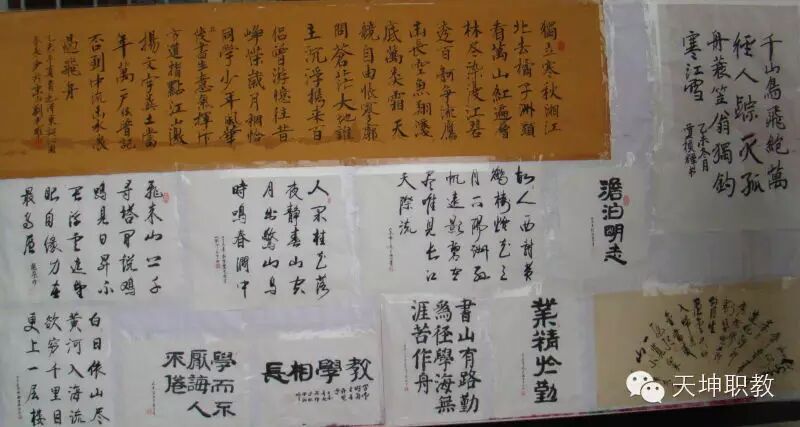 千山鳥飛絶萬
徑人踪灭孤
舟蓑笠翁獨釣
寒江雪
乙未冬月
獨立寒秋湘江
北去橘子洲頭
看萬山紅遍層
林尽染漫江碧
透百舸争流鷹
击長空魚翔淺
底萬类霜天
競自由悵寥廓
問蒼茫大地誰
主沉浮攜来百
侣曾游憶往昔
崢嶸歲月稠恰
同學少年風華
茂書生意氣揮斥
方遒指點江山激
揚文字糞土當
年萬户侯曾記
否到中流击水浪
遏飛舟
澹泊明志
故人西辞黄
鶴樓烟花三
月下陽州孤
帆遠影碧空
尽唯見長江
天際流
人闲桂花落
夜静春山空
月出驚山鳥
時鳴春澗中
飛来山上千
尋塔聞說鷄
鳴見日昇不
畏浮雲遮望
眼自缘身在
最高層
業精於勤
書山有路勤
為徑學海無
涯苦作舟
教學相長
學而不
厭誨人
不倦
白日依山尽
黄河入海流
欲窮千里目
更上一层樓
天坤职教